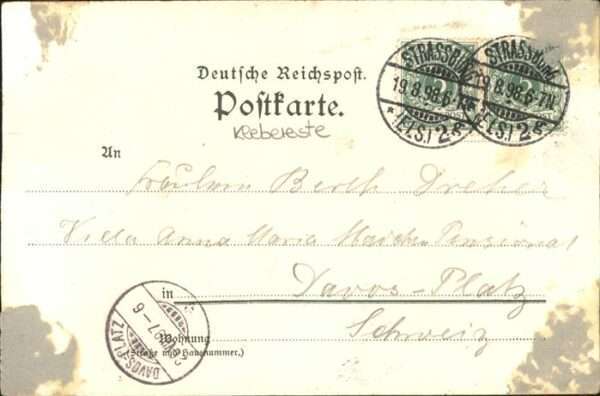 Deutsche Reichspost.
Postkarte.
Klebereste
STRASSBURG
19.8.98.6-7N.
* (ELS.) 2 a *
STRASSBURG
19.8.98.6-7N.
* (ELS.) 2 a *
An
Fräulein Berth Dreher
Villa Anna Maria Pensional
in Davos-Platz
Schweiz
Wohnung
(Straße und Hausnummer.)
DAVOS-PLATZ